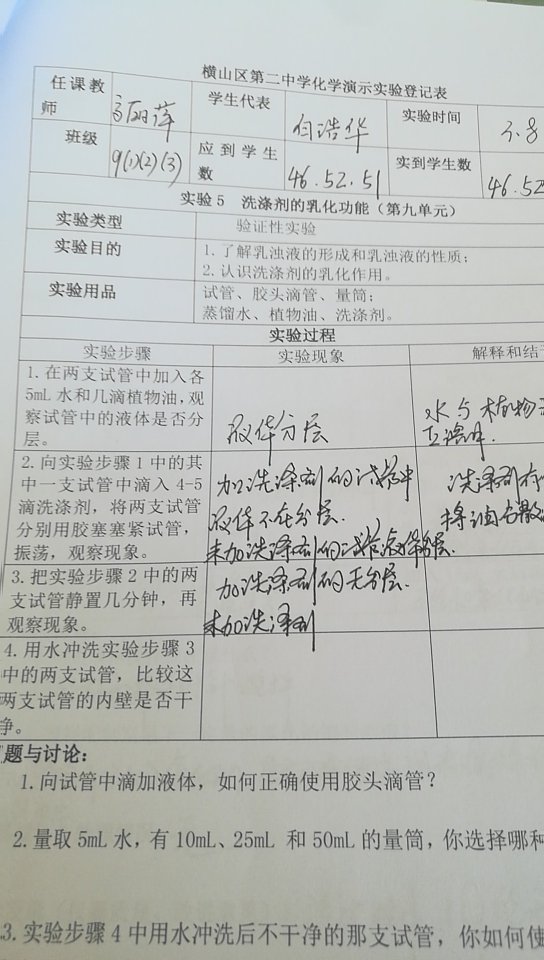 横山区第二中学化学演示实验登记表
任课教师 学生代表 白浩华 实验时间
班级 9(1)(2)(3) 应到学生数 46.52.51 实到学生数 46.52
实验5 洗涤剂的乳化功能（第九单元）
实验类型 验证性实验
实验目的 1.了解乳浊液的形成和乳浊液的性质；
2.认识洗涤剂的乳化作用。
实验用品 试管、胶头滴管、量筒；
蒸馏水、植物油、洗涤剂。
实验过程
实验步骤 实验现象 解释和结
1.在两支试管中加入各
5mL水和几滴植物油,观
察试管中的液体是否分
层。
液体分层
水与植物
互溶
2.向实验步骤1中的其
中一支试管中滴入4-5
滴洗涤剂，将两支试管
分别用胶塞塞紧试管，
振荡，观察现象。
加洗涤剂的试管中
液体不在分层.
未加洗涤剂的试管液体分层.
洗涤剂
将油
3.把实验步骤2中的两
支试管静置几分钟，再
观察现象。
加洗涤剂的无分层.
未加洗涤剂
4.用水冲洗实验步骤3
中的两支试管，比较这
两支试管的内壁是否干
净。
题与讨论：
1.向试管中滴加液体，如何正确使用胶头滴管？
2.量取5mL水，有10mL、25mL 和50mL的量筒，你选择哪种
3.实验步骤4中用水冲洗后不干净的那支试管，你如何使